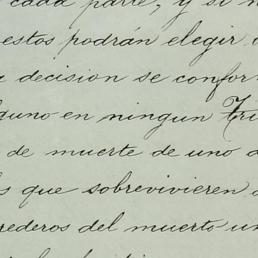 cada parte, y si n
estos podrán elegir
decision se confor
guno en ningun Tri
de muerte de uno
que sobrevivieren
rederos del muerto un